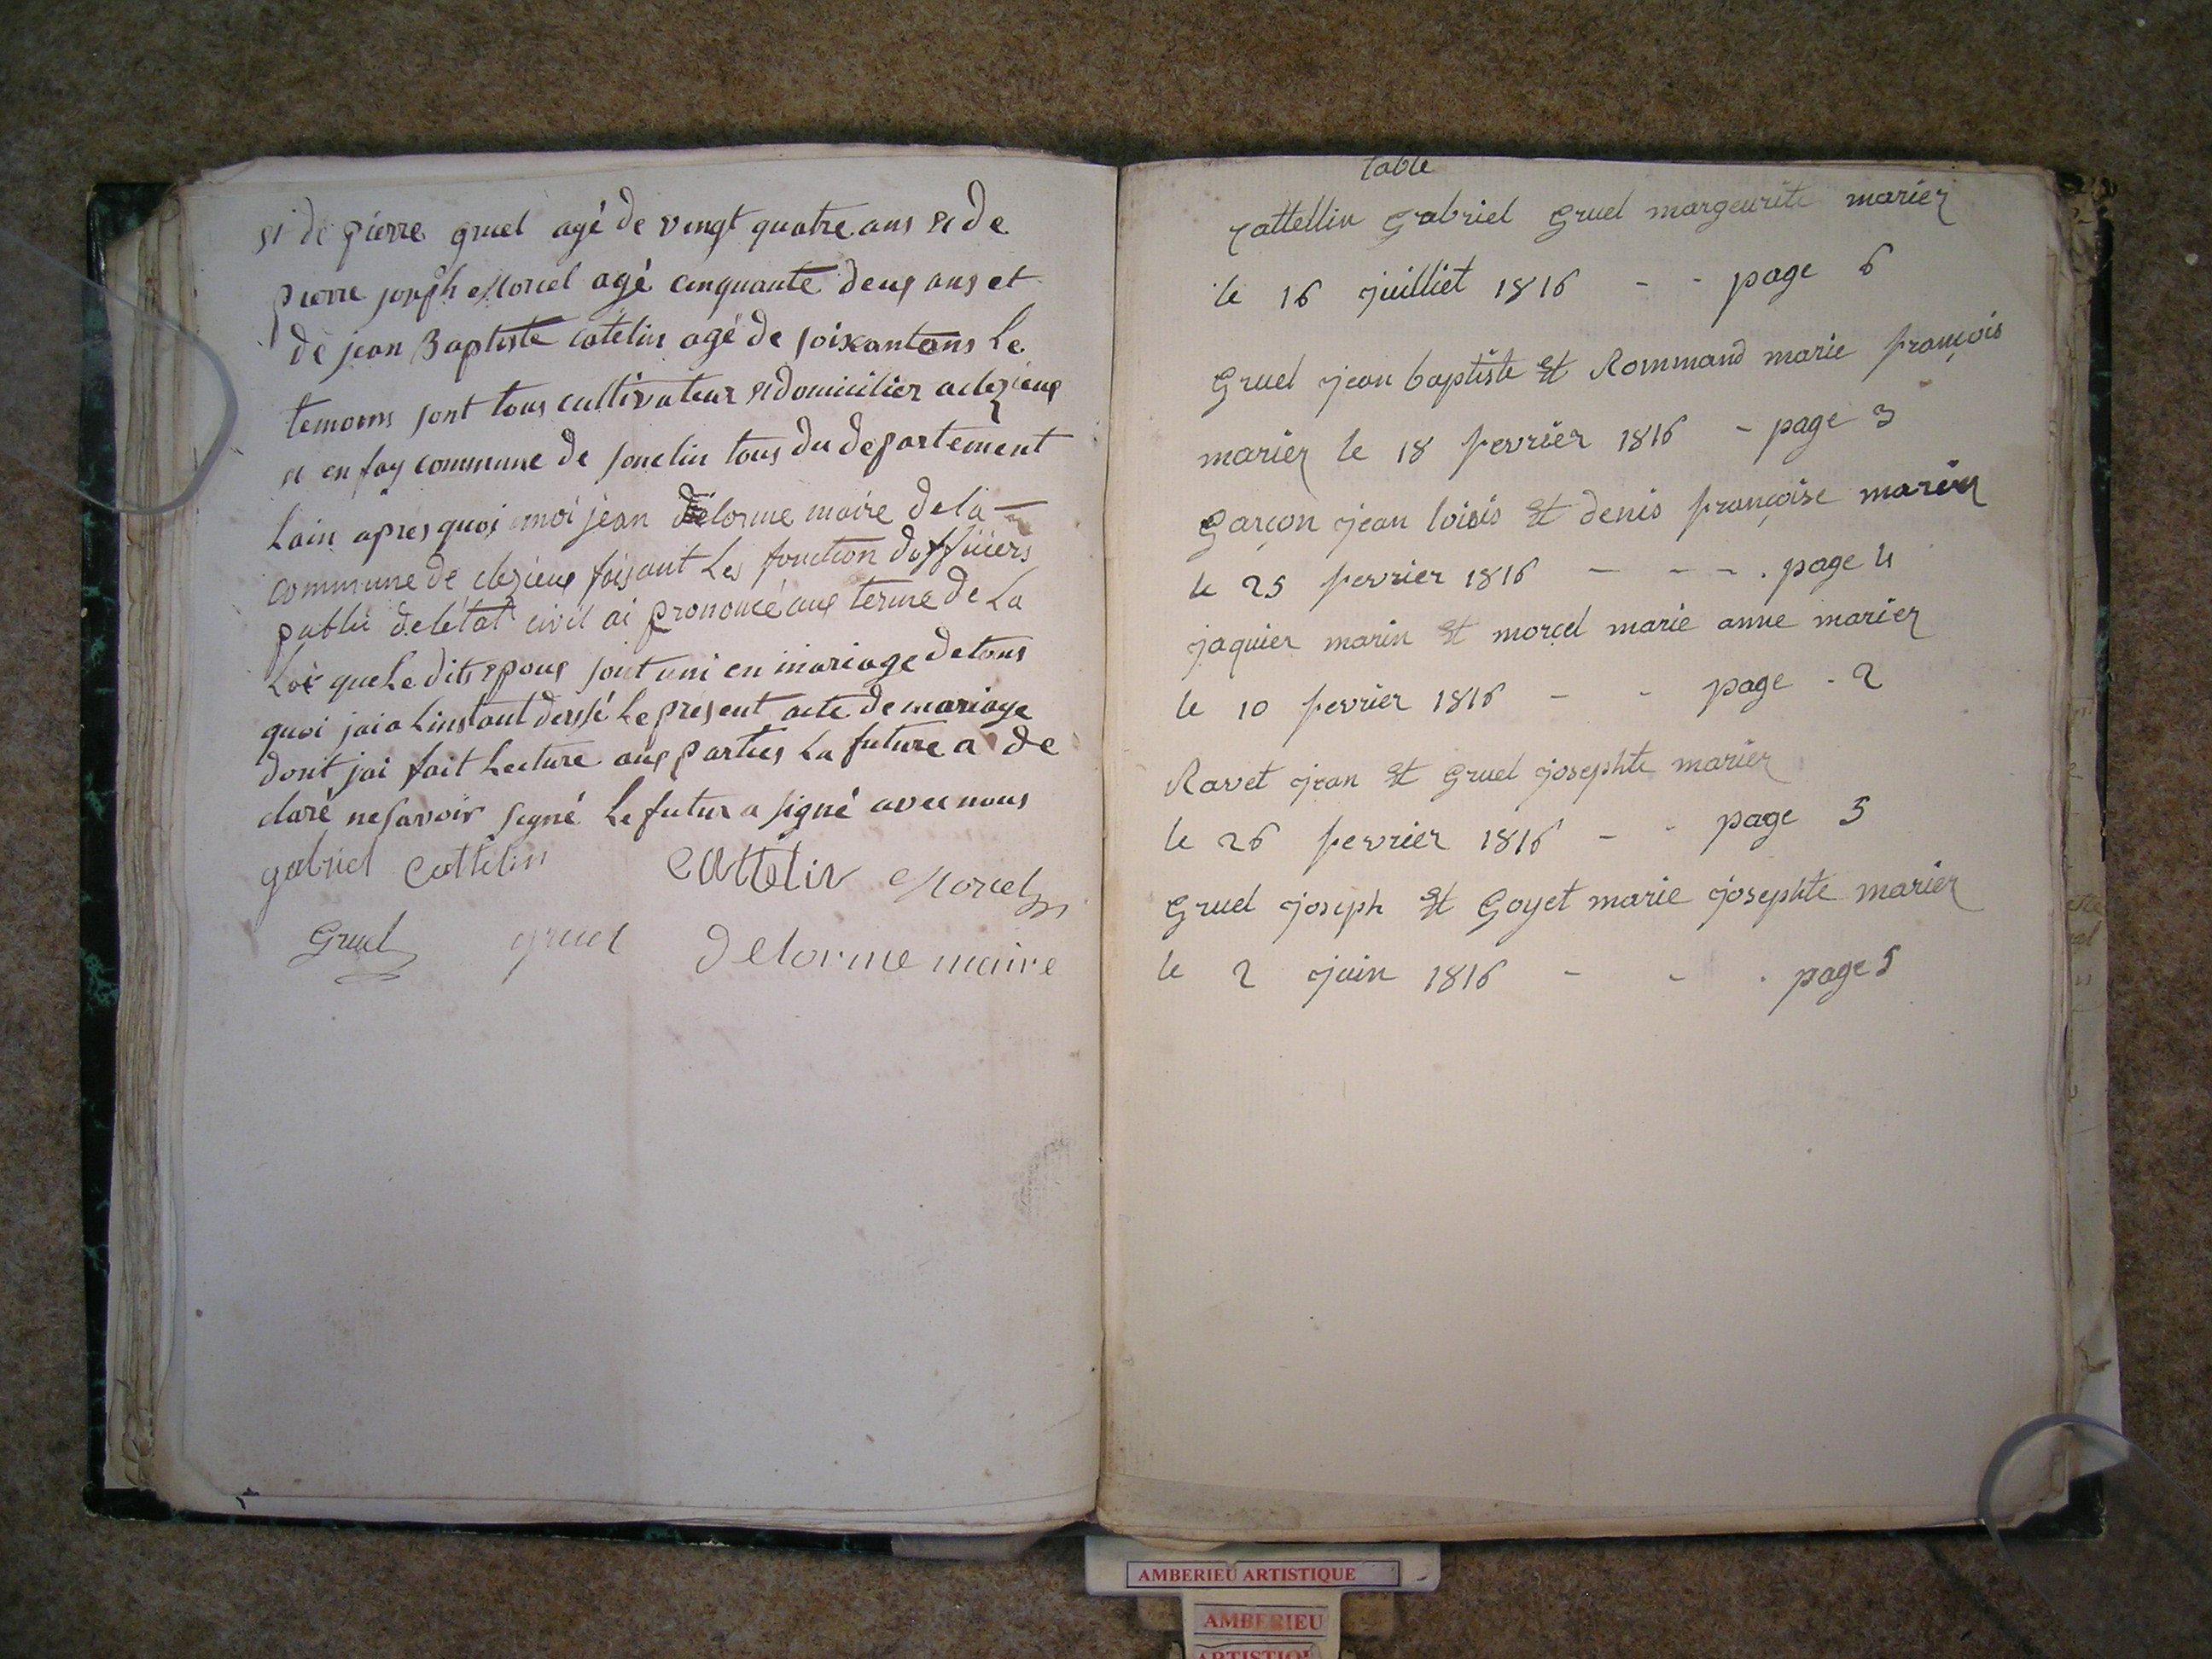 et de pierre gruel agé de vingt quatre ans et de
pierre joseph Morcel agé cinquante deux ans et
de jean Baptiste catelin agé de soixantans Le
temoins sont tous cultivateur et domicilier aclezieux
et en fay commune de souclin tous du departement
Lain apres quoi moi jean delorme maire de la —
commune de clezieux faisant Les fonction dofficiers
public de létat civil ai prononcé aux terme de La
Loi que Le dits epoux sont uni en mariage detous
quoi jai a Linstant dressé Le present acte de mariage
dont jai fait Lecture aux parties La future a de
claré ne savoir signé Le futur a signé avec nous
gabriel Cattelin Cattelin Morcel
Gruel gruel delorme maire
table
Cattellin Gabriel Gruel margeurite mariez
le 16 juilliet 1816 - - page 6
Gruel jean baptiste Et Rommand marie françois
mariez le 18 fevrier 1816 - page 3
Garçon jean loiois Et denis françoise mariez
le 25 fevrier 1816 - - - . page 4
jaquier marin Et morcel marie anne mariez
le 10 fevrier 1816 - - page . 2
Ravet jean Et Gruel josephte mariez
le 26 fevrier 1816 - - page 5
Gruel joseph Et Goyet marie josephte mariez
le 2 juin 1816 - - . page 5
AMBERIEU ARTISTIQUE
AMBERIEU
ARTISTIQU